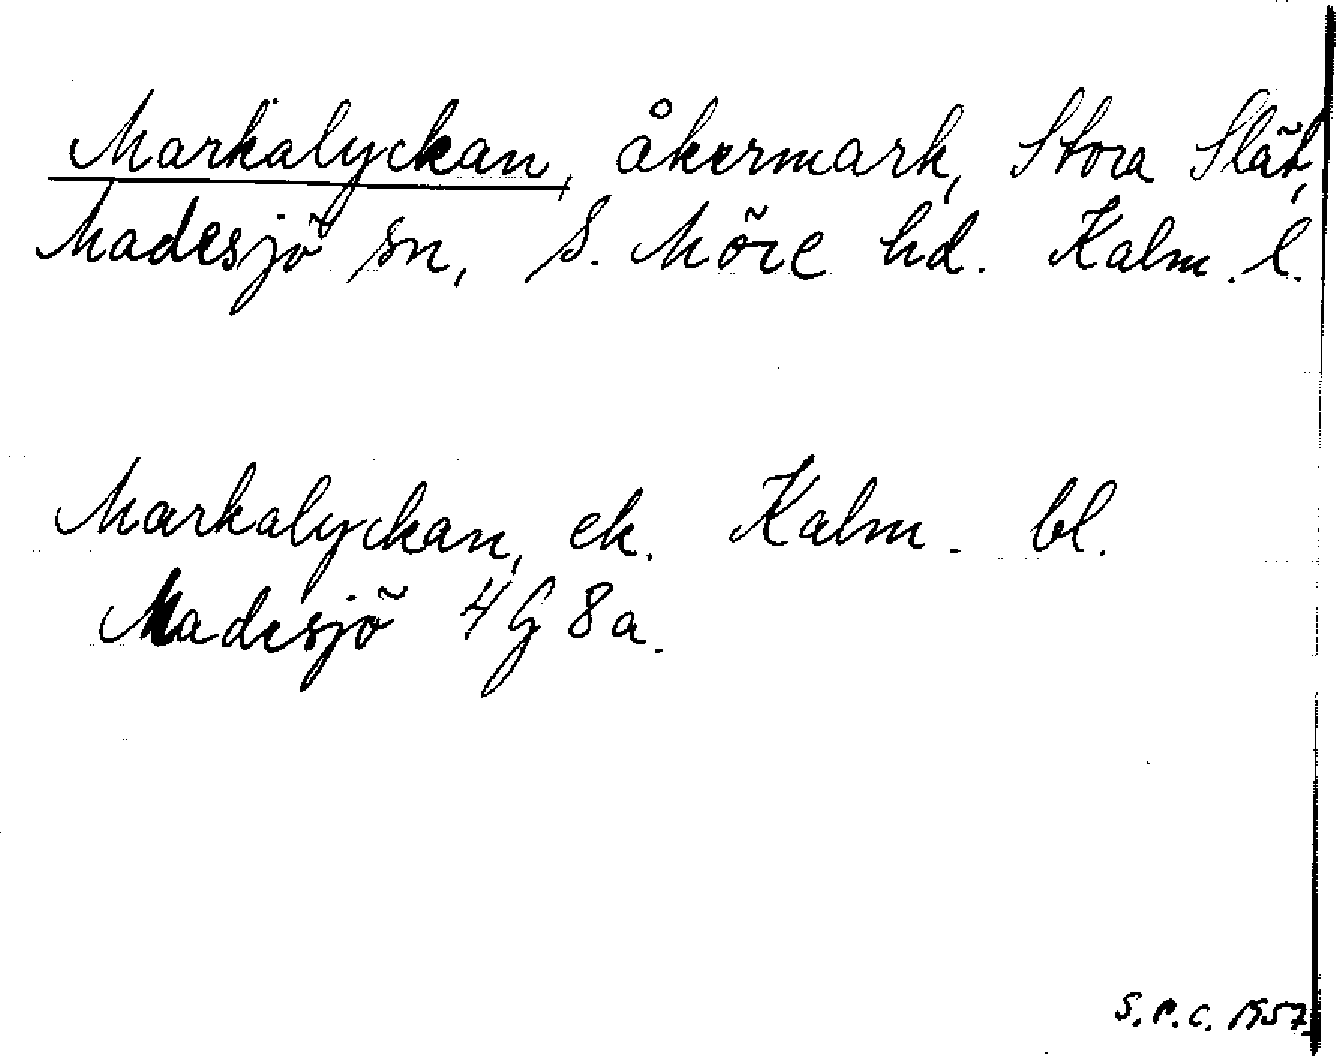 Markalyckan, åkermark, Stora Slät,
Madesjö sn, S. Möre hd. Kalm. l.
Markalyckan, ek. Kalm. bl.
Madesjö 4G8a.
S.P.C. 1957